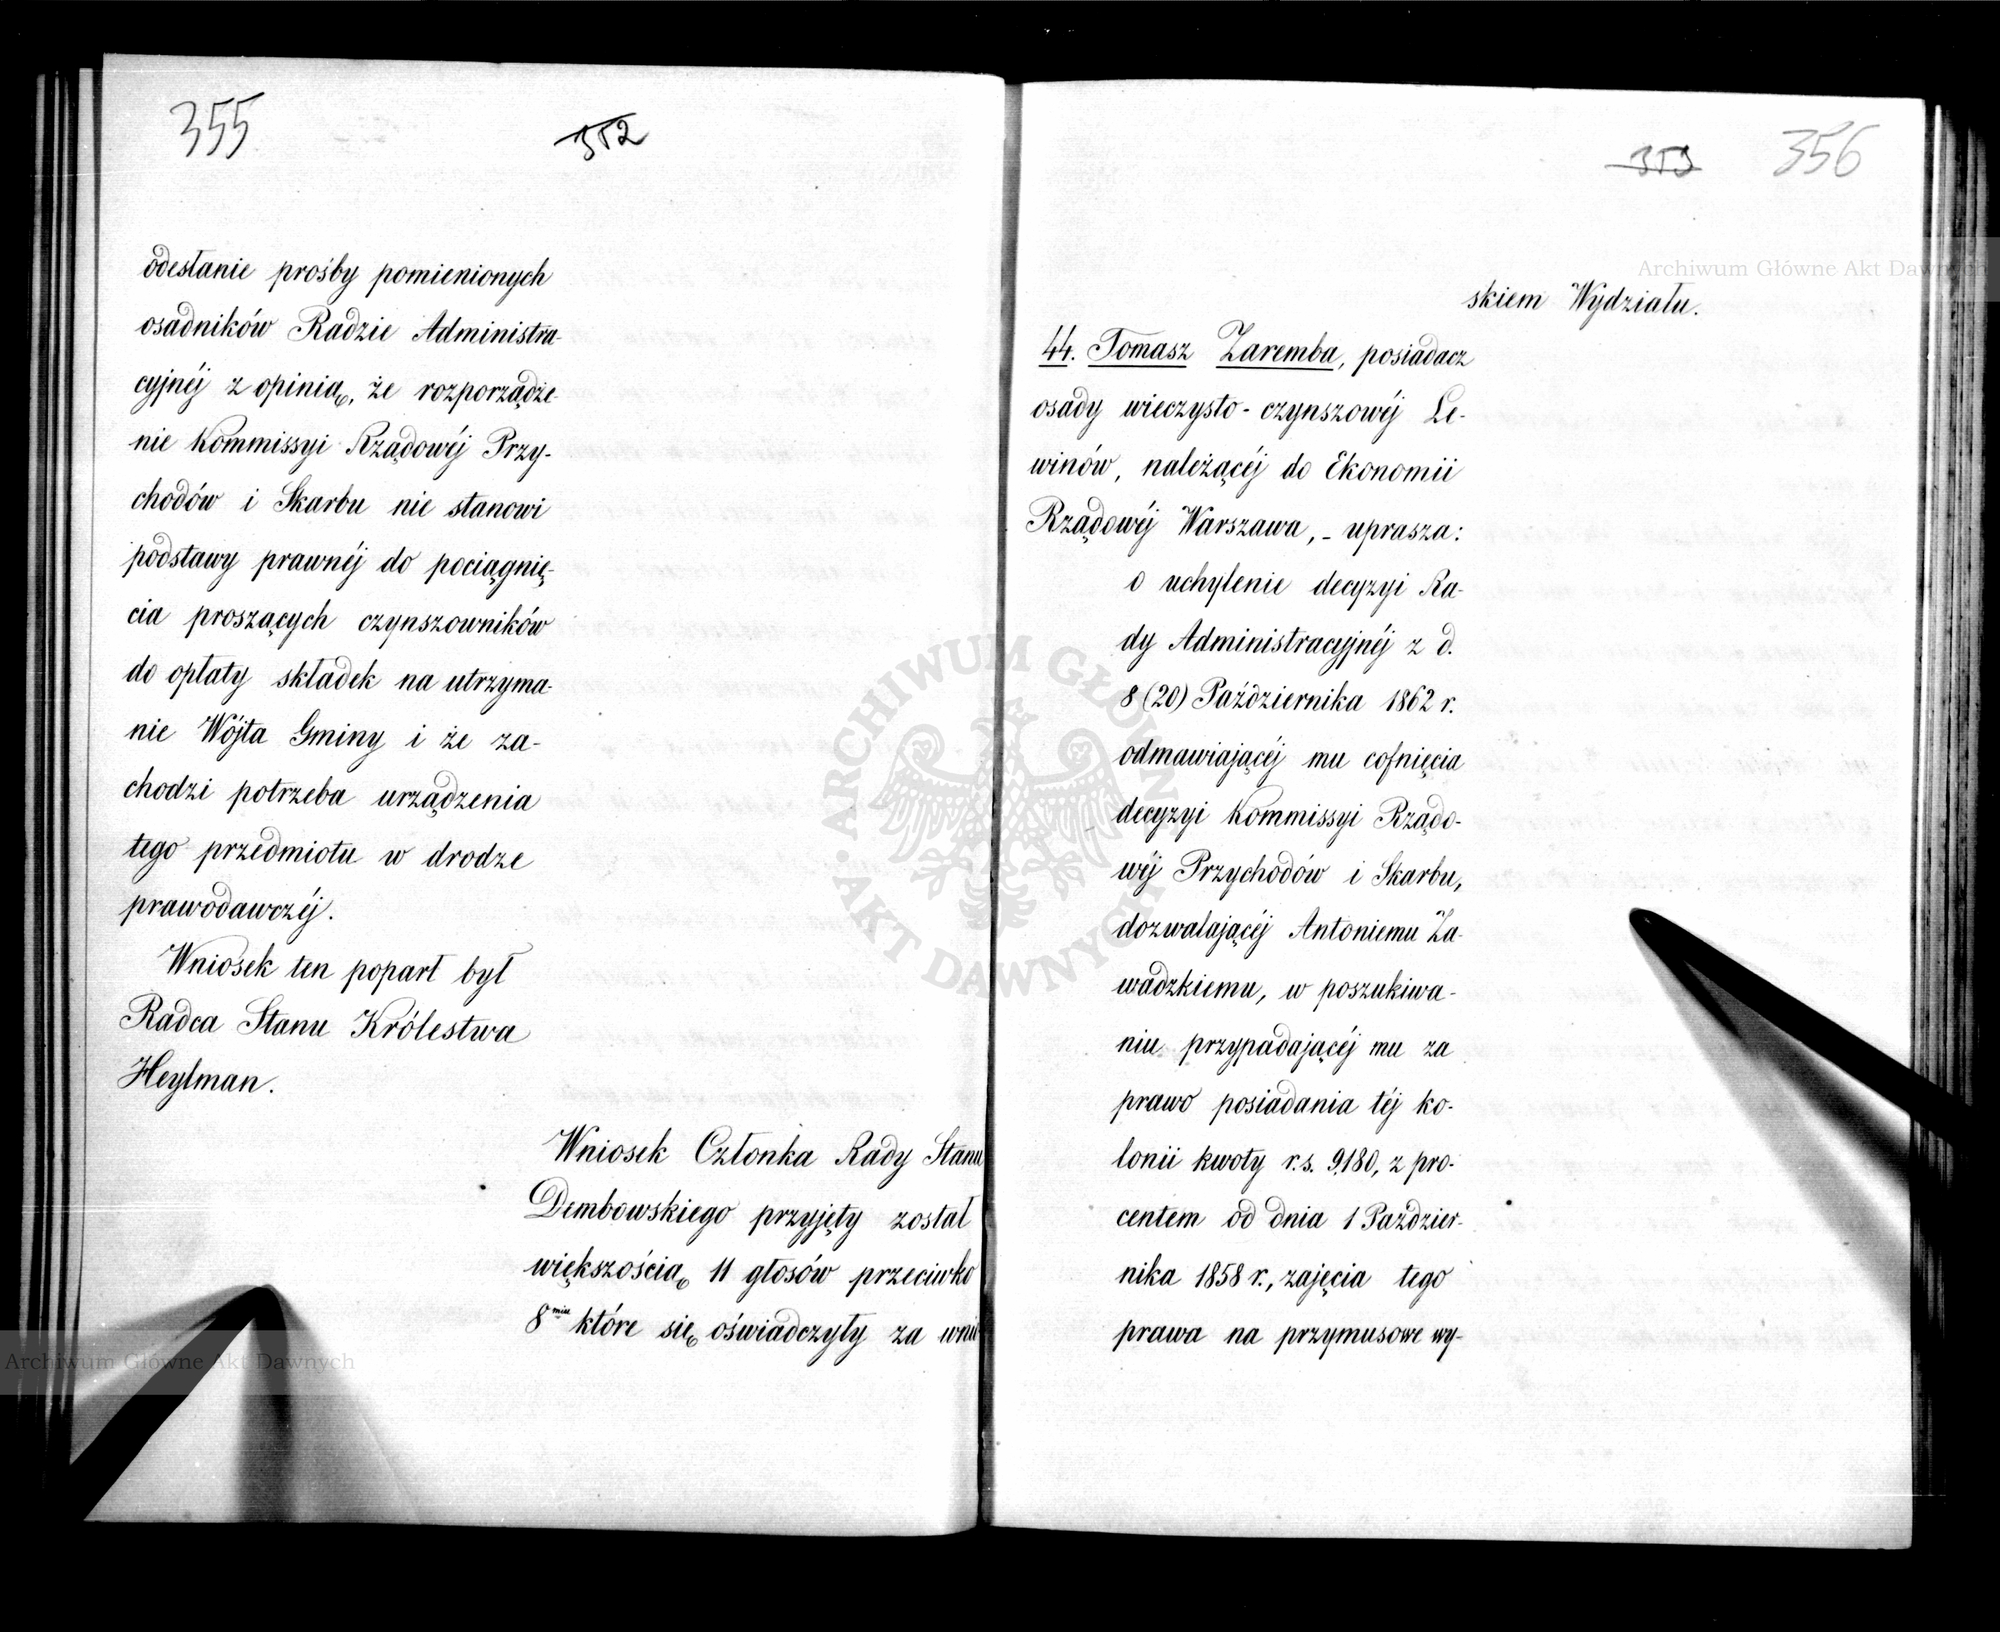 355
352
odesłanie prośby pomienionych
osadników Radzie Administra-
cyjnéj z opinią, że rozporządze-
nie Kommissyi Rządowéj Przy-
chodów i Skarbu nie stanowi
podstawy prawnéj do pociągnię-
cia proszących czynszowników
do opłaty składek na utrzyma-
nie Wójta Gminy i że za-
chodzi potrzeba urządzenia
tego przedmiotu w drodze
prawodawczéj.
Wniosek ten poparł był
Radca Stanu Królestwa
Heylman.
Wniosek Członka Rady Stanu
Dembowskiego przyjęty został
większością 11 głosów przeciwko
8miu które się oświadczyły za wnio
353 356
skiem Wydziału.
44. Tomasz Zaremba, posiadacz
osady wieczysto-czynszowéj Le-
winów, należącéj do Ekonomii
Rządowéj Warszawa, - uprasza:
o uchylenie decyzyi Ra-
dy Administracyjnéj z d.
8 (20) Października 1862 r.
odmawiającéj mu cofnięcia
decyzyi Kommissyi Rządo-
wéj Przychodów i Skarbu,
dozwalającéj Antoniemu Za-
wadzkiemu, w poszukiwa-
niu przypadającéj mu za
prawo posiadania téj ko-
lonii kwoty r.s. 9,180, z pro-
centem od dnia 1 Paździer-
nika 1858 r., zajęcia tego
prawa na przymusowe wy-
Archiwum Główne Akt Dawnych
Archiwum Główne Akt Dawnych
ARCHIWUM GŁÓWNE AKT DAWNYCH